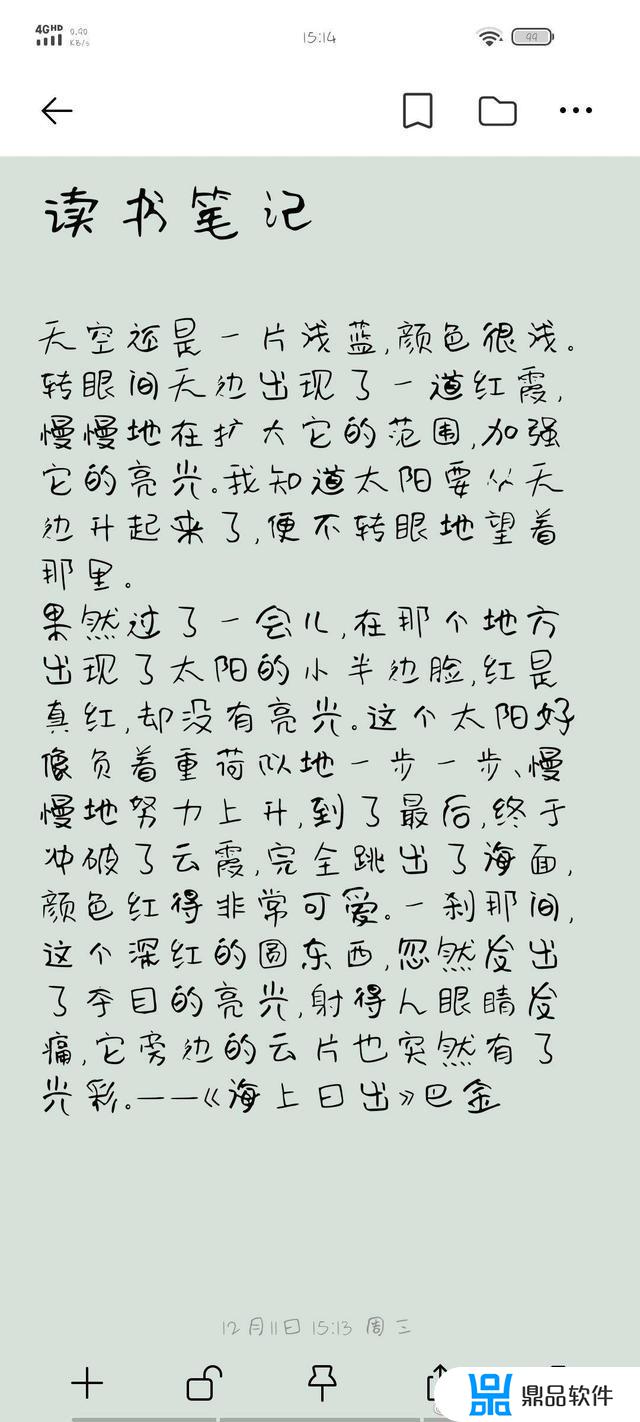 4G HD 0.90 KB/s 15:14 99
读书笔记
天空还是一片浅蓝,颜色很浅。
转眼间天边出现了一道红霞,
慢慢地在扩大它的范围,加强
它的亮光。我知道太阳要从天
边升起来了,便不转眼地望着
那里。
果然过了一会儿,在那个地方
出现了太阳的小半边脸,红是
真红,却没有亮光。这个太阳好
像负着重荷似地一步一步、慢
慢地努力上升,到了最后,终于
冲破了云霞,完全跳出了海面,
颜色红得非常可爱。一刹那间,
这个深红的圆东西,忽然发出
了夺目的亮光,射得人眼睛发
痛,它旁边的云片也突然有了
光彩。——《海上日出》巴金
12月11日 15:13 周三
鼎品软件